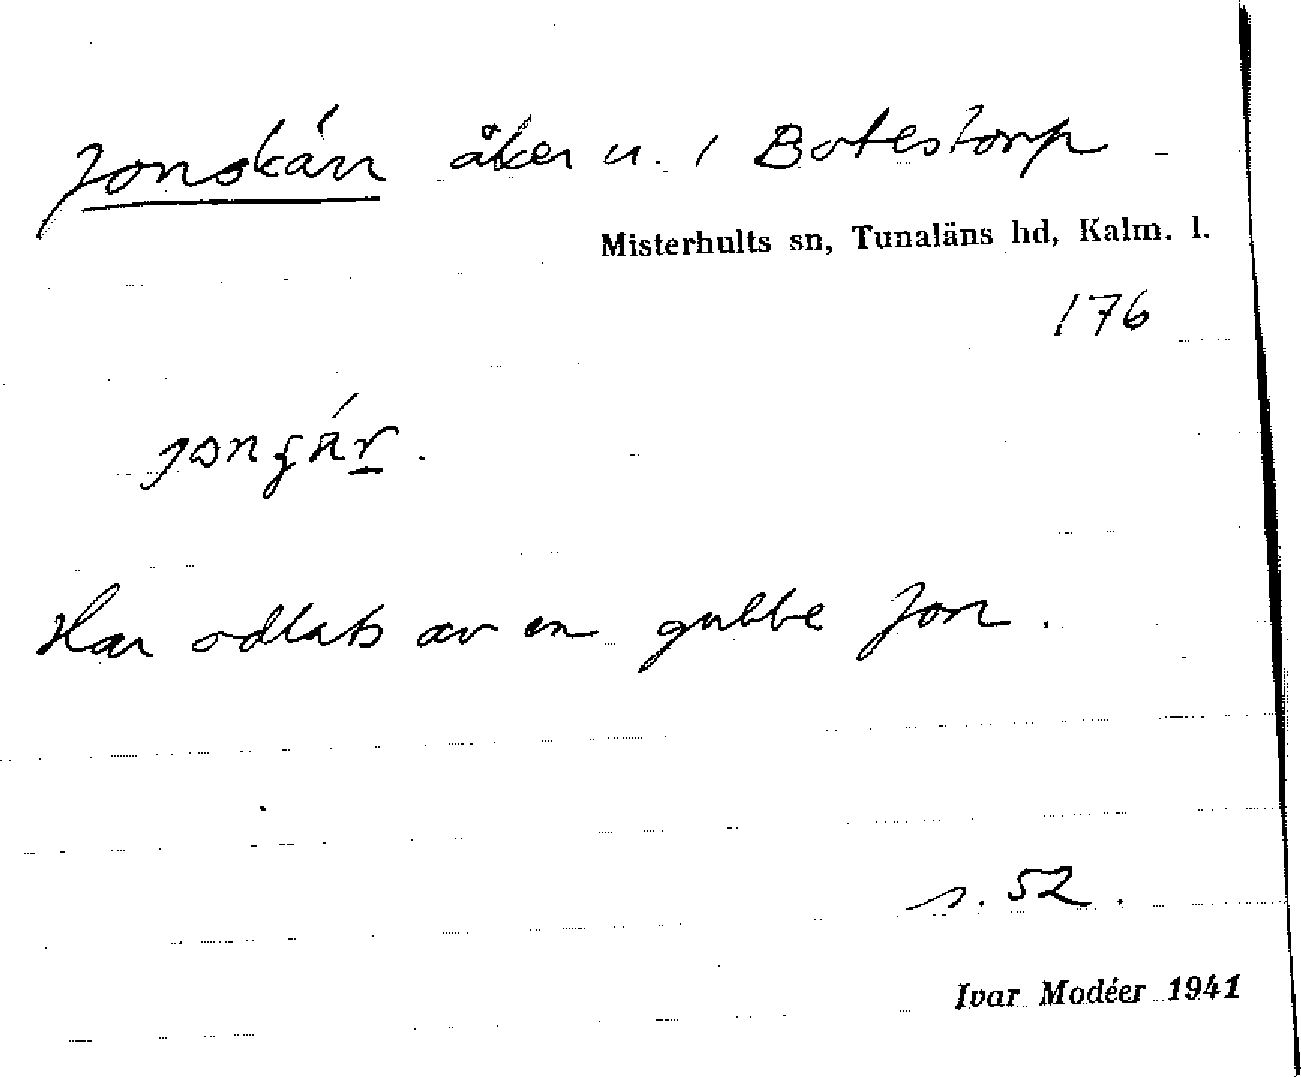 Jonskärr åker u. 1 Botestorp
Misterhults sn, Tunaläns hd, Kalm. l.
176
Har odlats av en gubbe Jon.
s. 52.
Ivar Modéer 1941